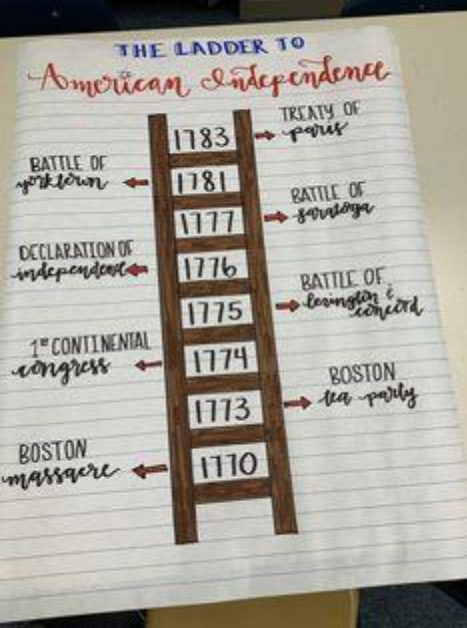 THE LADDER TO
American Independence
1783
TREATY OF
paris
BATTLE OF
yorktown
1781
1777
BATTLE OF
saratoga
DECLARATION OF
independence
1776
1775
BATTLE OF
lexington &
concord
1st CONTINENTAL
congress
1774
1773
BOSTON
tea party
BOSTON
massacre
1770